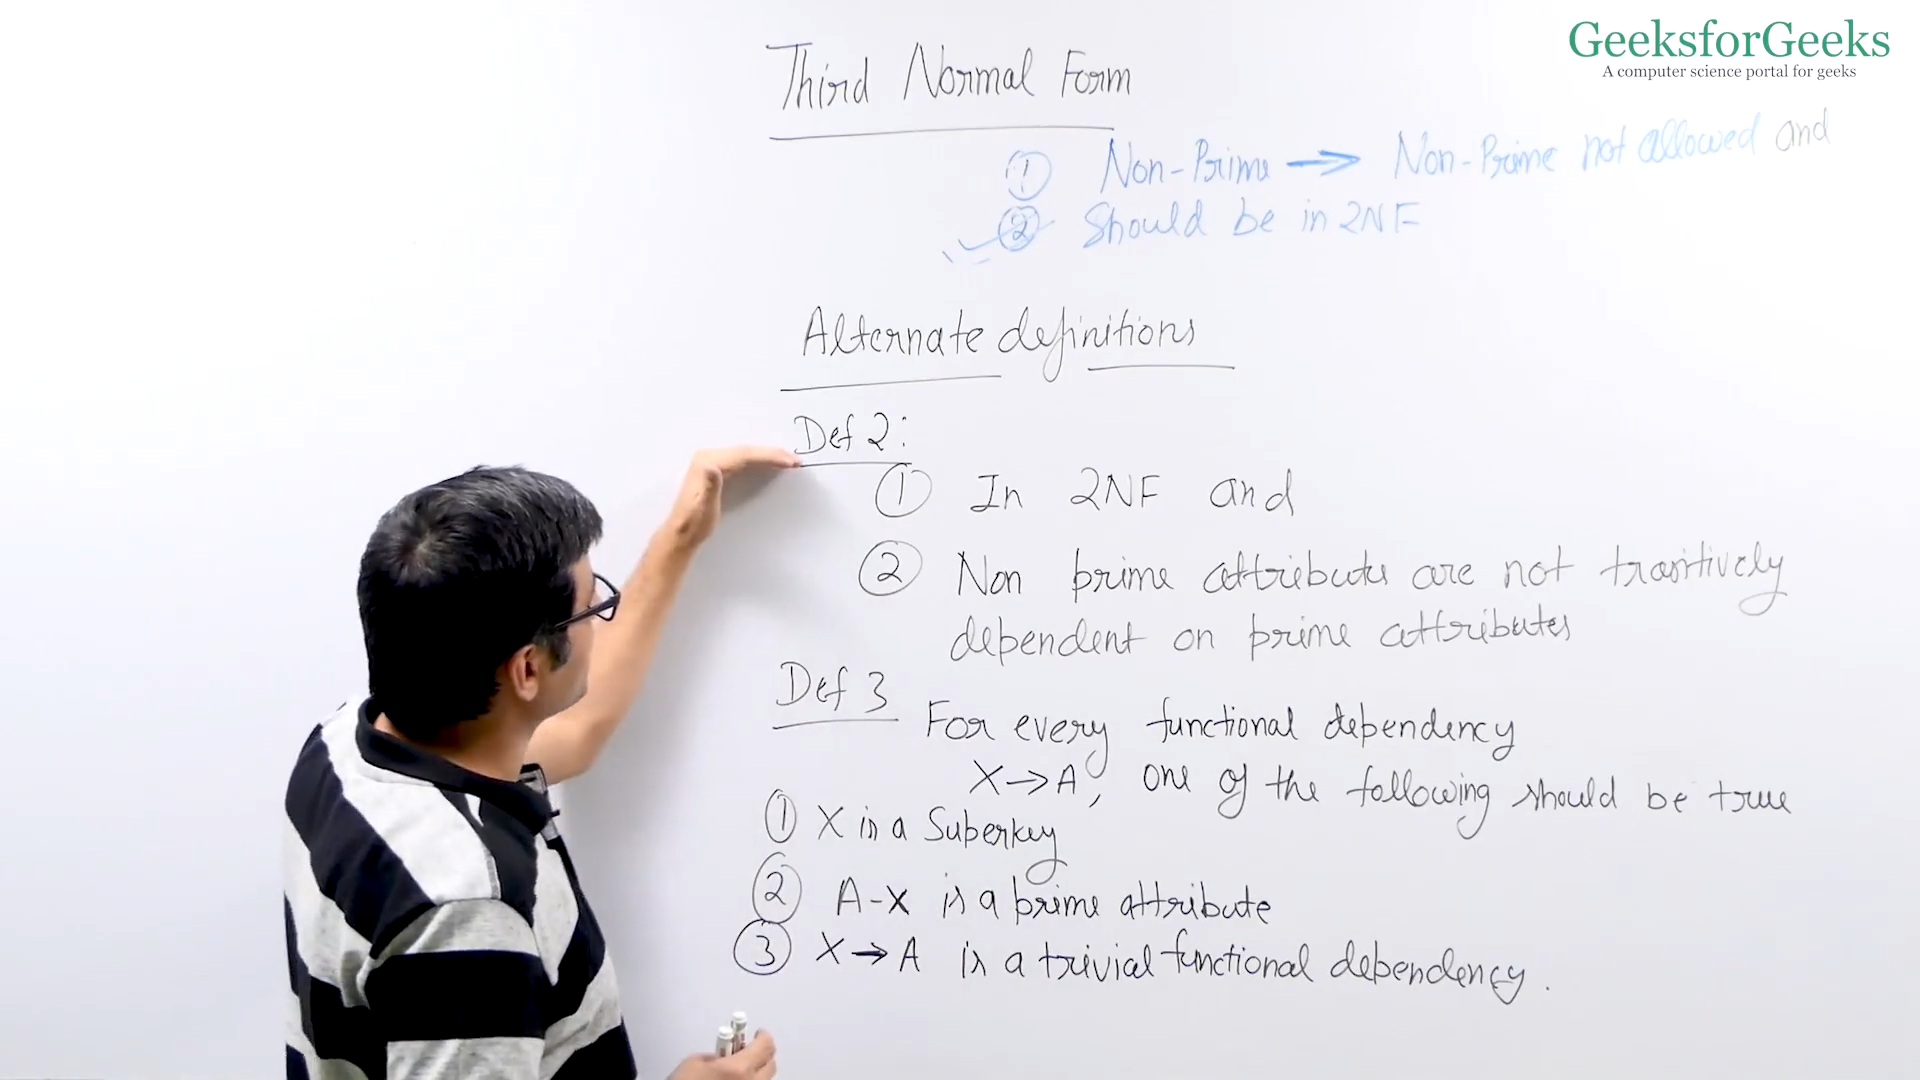 GeeksforGeeks
A computer science portal for geeks
Third Normal Form
① Non-Prime → Non-Prime not allowed and
② Should be in 2NF
Alternate definitions
Def 2:
① In 2NF and
② Non prime attributes are not transitively
dependent on prime attributes
Def 3
For every functional dependency
X→A, one of the following should be true
① X is a Superkey
② A-X is a prime attribute
③ X→A is a trivial functional dependency.